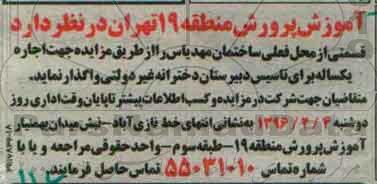 آموزش پرورش منطقه ۱۹ تهران در نظر دارد
قسمتی از محل فعلی ساختمان مهدیاس را از طریق مزایده جهت اجاره
یکساله برای تاسیس دبیرستان دخترانه غیر دولتی واگذار نماید.
متقاضیان جهت شرکت در مزایده و کسب اطلاعات بیشتر تا پایان وقت اداری روز
دوشنبه ۱۳۹۶/۲/۴ به نشانی انتهای خط نازی آباد - نبش میدان بهمنیار
آموزش پرورش منطقه ۱۹ - طبقه سوم - واحد حقوقی مراجعه و یا با
شماره تماس ۵۵۰۳۱۰۱۰ تماس حاصل فرمایند.